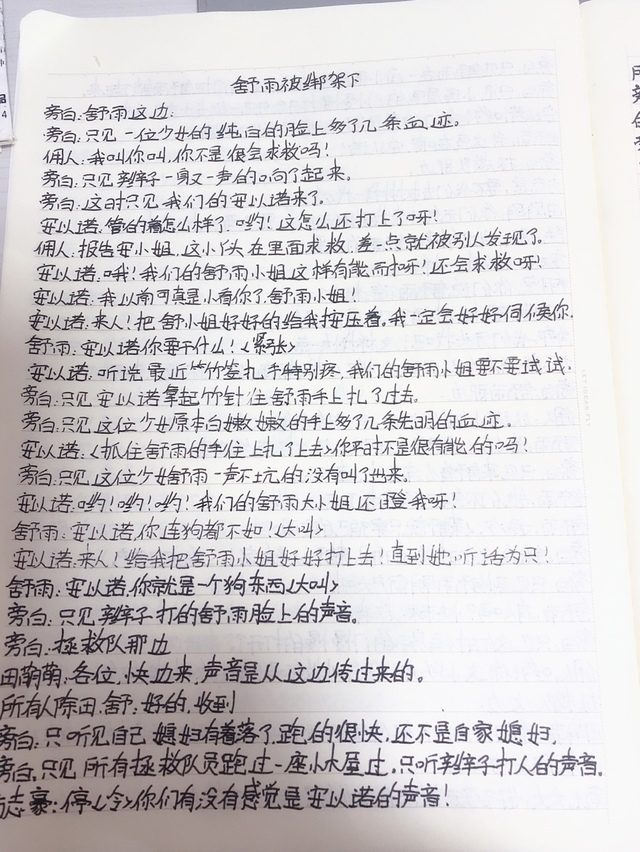 舒雨被绑架下
旁白:舒雨这边:
旁白:只见一位少女的纯白的脸上多了几条血迹。
佣人:我叫你叫,你不是很会求救吗!
旁白:只见辫子一身又一声的响了起来。
旁白:这时只见我们的安以诺来了。
安以诺:管的着怎么样了,哟!这怎么还打上了呀!
佣人:报告安小姐,这小丫头在里面求救,差一点就被别人发现了。
安以诺:哦!我们的舒雨小姐这样有能而呀!还会求救呀!
安以诺:我以前可真是小看你了,舒雨小姐!
安以诺:来人!把舒小姐好好的给我按压着。我一定会好好伺候你.
舒雨:安以诺你要干什么!<紧张>
安以诺:听说最近竹签扎手特别疼,我们的舒雨小姐要不要试试.
旁白:只见安以诺拿起竹针往舒雨手上扎了过去。
旁白:只见这位少女原本白嫩嫩的手上多了几条先明的血迹。
安以诺:<抓住舒雨的手住上扎了上去>你平时不是很有能的吗!
旁白:只见这位少女舒雨一声不坑的没有叫了出来。
安以诺:哟!哟!哟!我们的舒雨大小姐还瞪我呀!
舒雨:安以诺,你连狗都不如!<大叫>
安以诺:来人!给我把舒雨小姐好好打上去!直到她听话为只!
舒雨:安以诺,你就是一个狗东西<大叫>
旁白:只见辫子打的舒雨脸上的声音。
旁白:拯救队那边
田萌萌:各位,快边来,声音是从这边传过来的。
所有人除田.舒:好的,收到
旁白:只听见自己媳妇有着落了,跑的很快,还不是自家媳妇.
旁白:只见所有拯救队员跑过一座小木屋过,只听辫子打人的声音.
志豪:停<冷>你们有没有感觉是安以诺的声音!